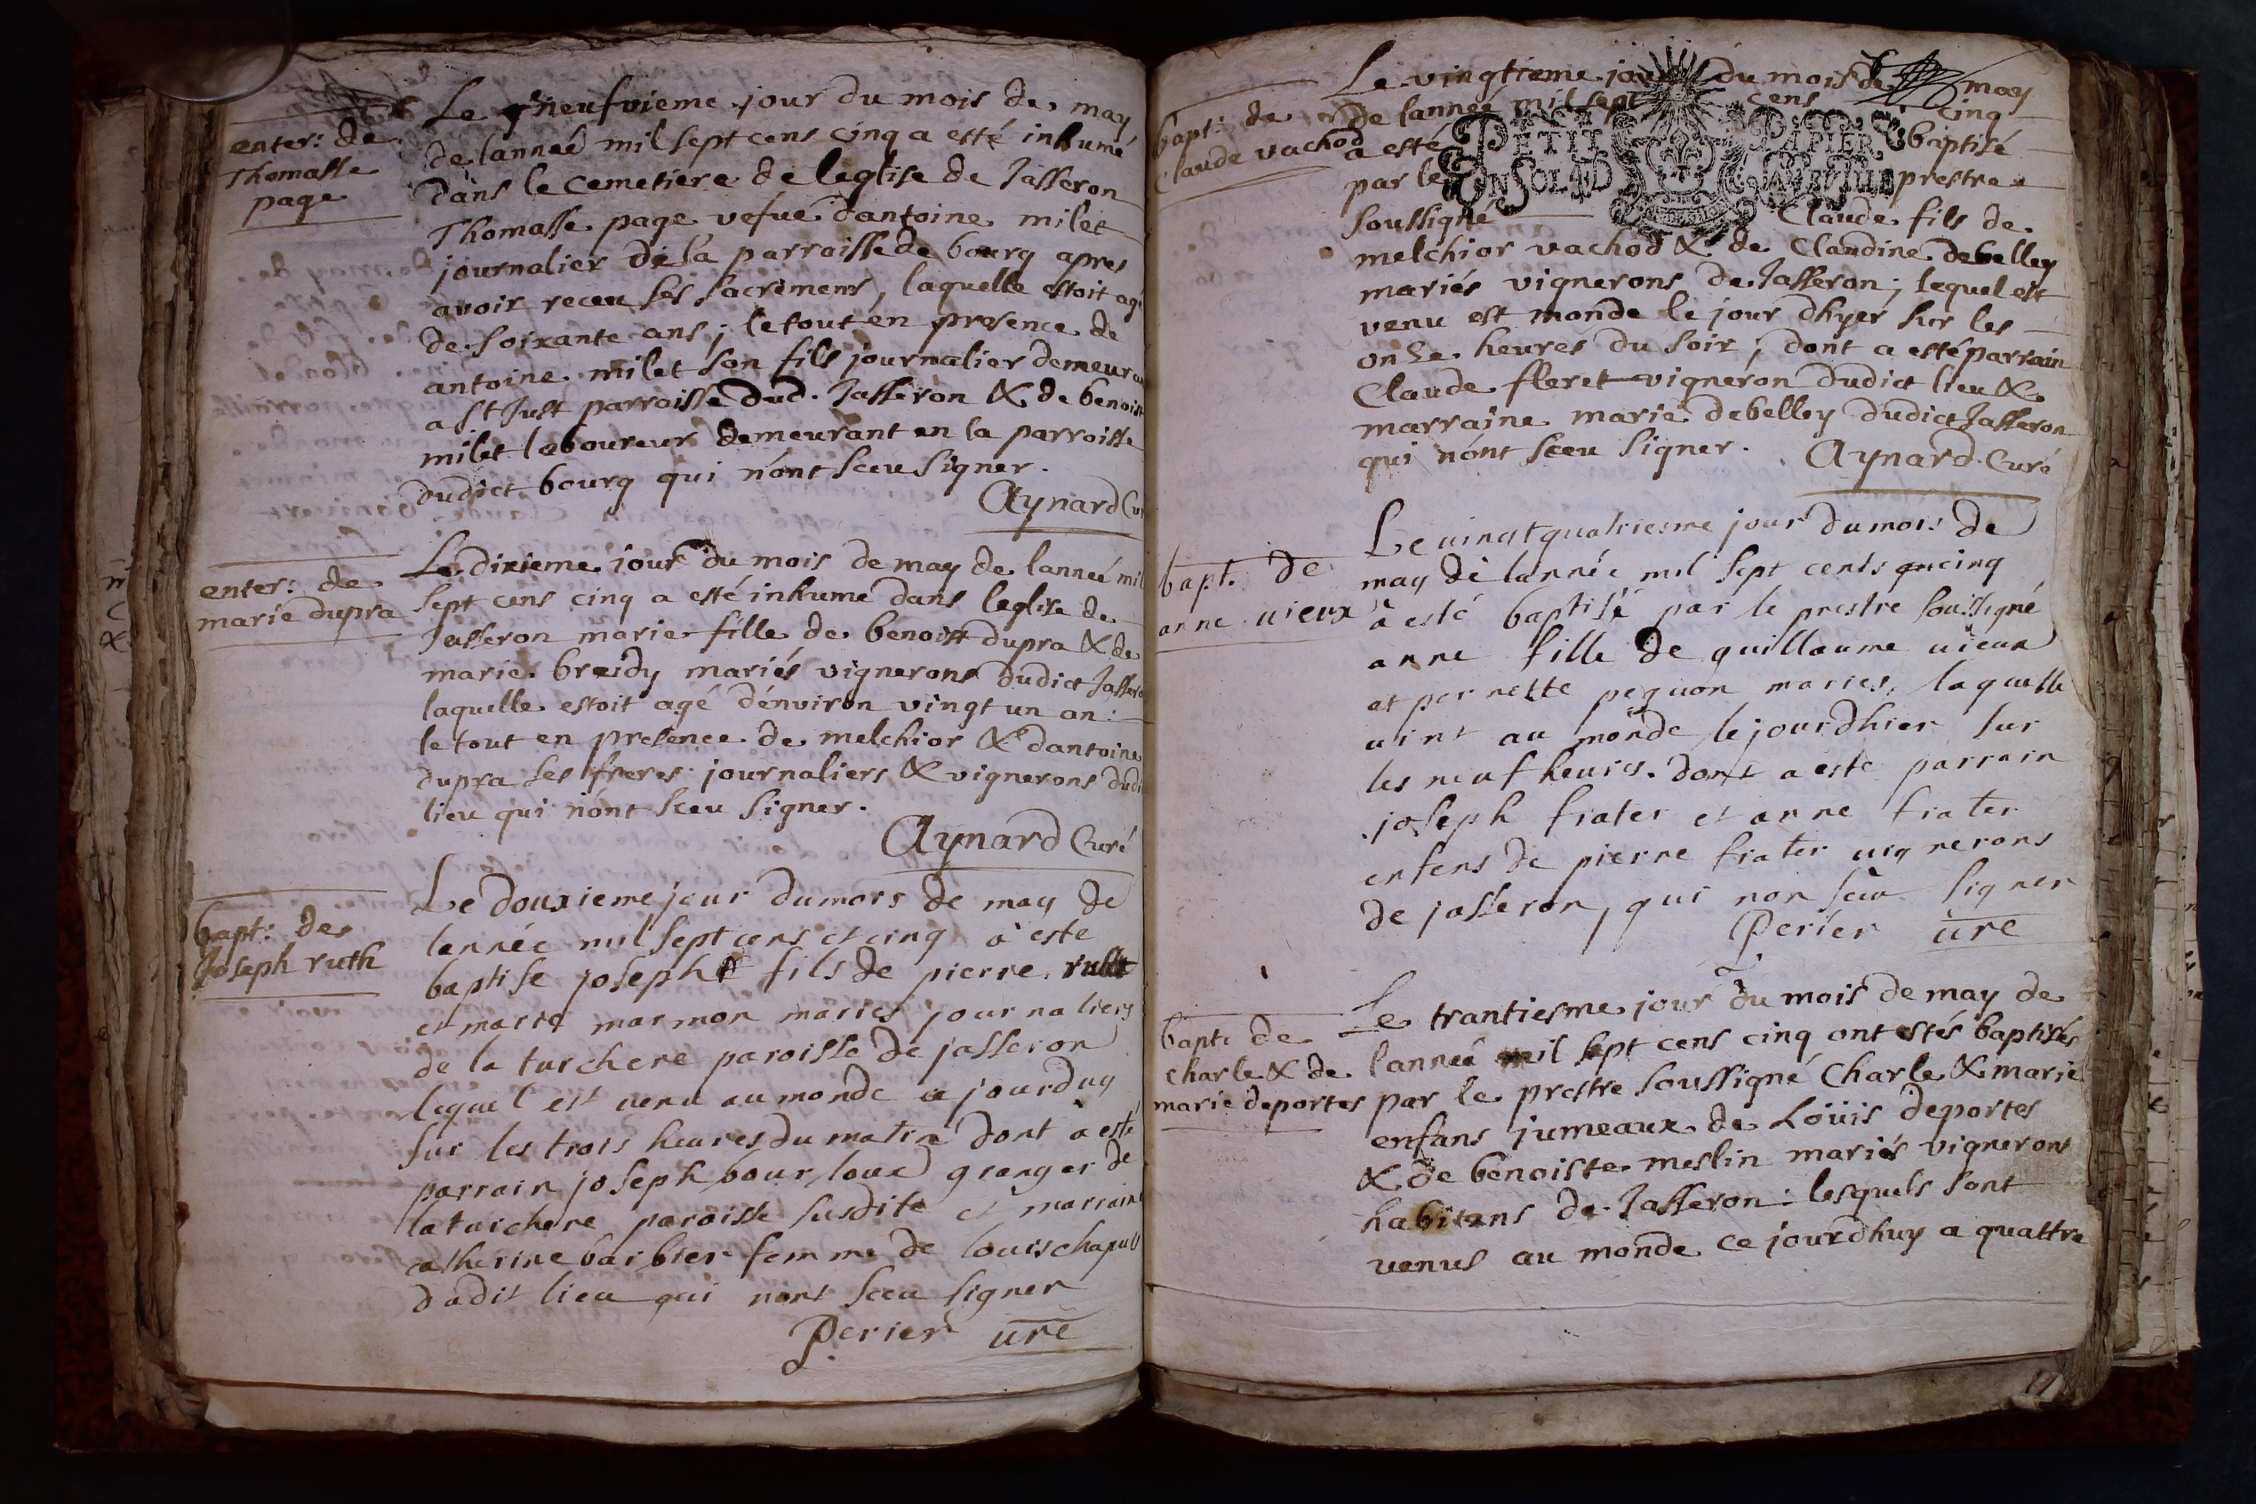 enter: de
Thomasse
page
Le neufvieme jour du mois de may
de lanneé mil sept cens cinq a esté inhumé
dans le cemetiere de leglise de Jasseron
Thomasse page vefue dantoine milet
journalier de la parroisse de bourg apres
avoir receu ses sacremens, laquelle estoit agé
de soixante ans; le tout en presence de
antoine milet son fils journalier demeuran
a st Just parroisse dud. Jasseron & de benoist
milet laboureur demeurant en la parroisse
dudict bourg qui nont sceu signer.
Aynard Cur
enter: de
marie dupra
Le dixieme jour du mois de may de lanneé mil
sept cens cinq a esté inhumé dans leglise de
Jasseron marie fille de benoist dupra & de
marie bresdy mariés vignerons dudict Jassero
laquelle estoit agé denviron vingt un an:
le tout en presence de melchior & dantoine
dupra ses freres journaliers & vignerons dud
lieu qui nont sceu signer.
Aynard Curé
bapt: de
Joseph ruth
Le douxieme jour du mois de may de
lennée mil sept cens et cinq à este
baptise joseph fils de pierre
et marie marmon maries journaliers
de la turchere paroisse de jasseron
lequel est venu au monde ce jourduy
sur les trois heures du matin dont à esté
parrain joseph bourloux granger de
la turchere paroisse susdite et marraine
catherine barbier femme de louis chapull
dudit lieu qui nont sceu signer
Perier ure
bapt: de
Claude vachod
Le vingtieme jour du mois de may
de lanneé mil sept cens cinq
a esté baptisé
PETIT PAPIER
UN SOL LA
par le prestre
soussigné Claude fils de
melchior vachod & de Claudine debelley
mariés vignerons de Jasseron; lequel est
venu est monde le jour dhyer sur les
onze heures du soir; dont a esté parrain
Claude fleret vigneron dudict lieu &
marraine marie debelley dudict Jasseron
qui nont sceu signer. Aynard Curé
bapt. de
anne vieux
Le vingt quatriesme jour du mois de
may de lannée mil sept cents cinq
à esté baptisé par le prestre soussigné
anne fille de guillaume vieux
et pernette peguon maries, laquelle
vint au monde le jour dhier sur
les neuf heures. dont a este parrain
joseph frater et anne frater
enfens de pierre frater vignerons
de jasseron, qui non sceu signer
Perier ure
bapt: de
charle & de
marie deportes
Le trantiesme jour du mois de may de
lanneé mil sept cens cinq ont estés baptisés
par le prestre soussigné Charle & marie
enfans jumeaux de Loüis deportes
& de benoiste meslin mariés vignerons
habitans de Jasseron: lesquels sont
venus au monde ce jourdhuy a quattre